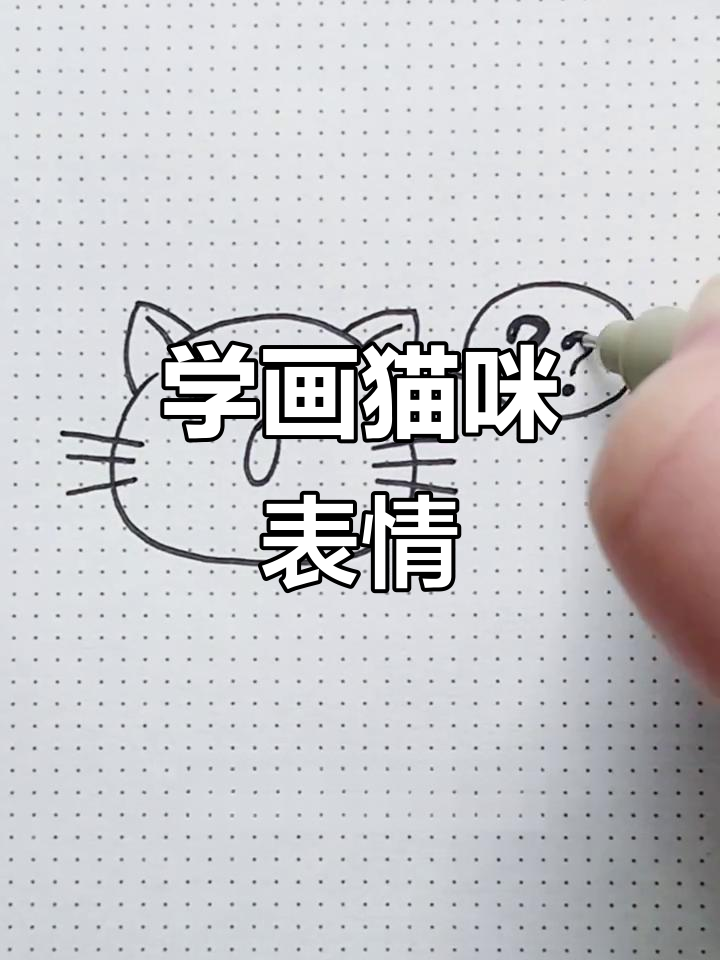 ??
学画猫咪
表情